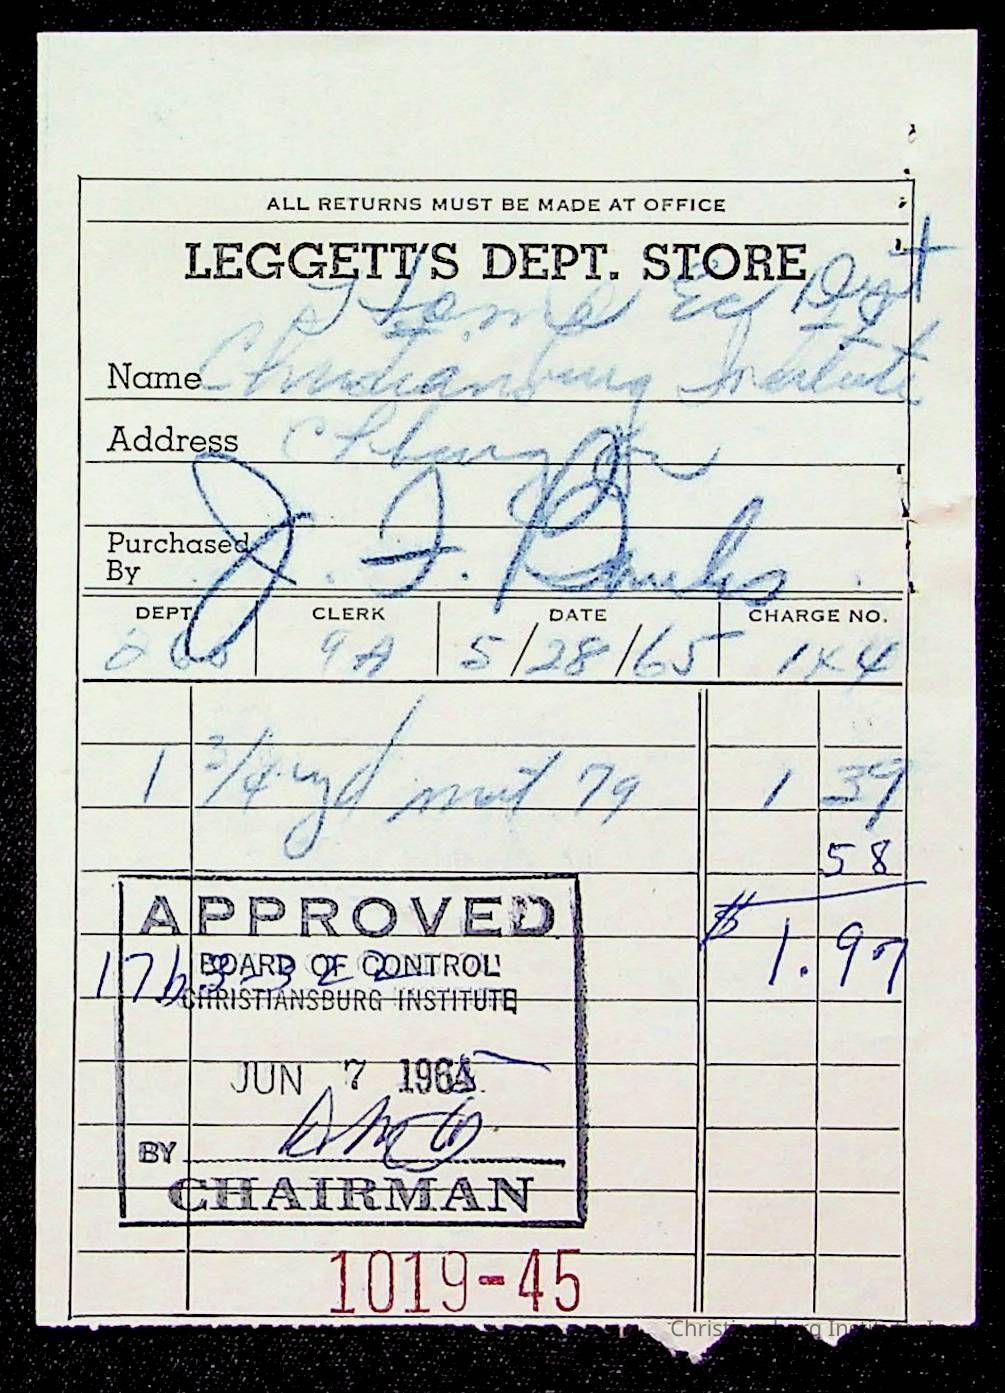 ALL RETURNS MUST BE MADE AT OFFICE
LEGGETT'S DEPT. STORE
Home Ec Dept
Name Christiansburg Institute
Address Chburg Va
Purchased By J. F. Banks
DEPT. CLERK DATE CHARGE NO.
9A 5/28/65 144
1 3/4 yd mat 79 1 39
58
$ 1.97
APPROVED
BOARD OF CONTROL
CHRISTIANSBURG INSTITUTE
JUN 7 1965
BY
CHAIRMAN
1019-45
Christiansburg Institute, Inc.